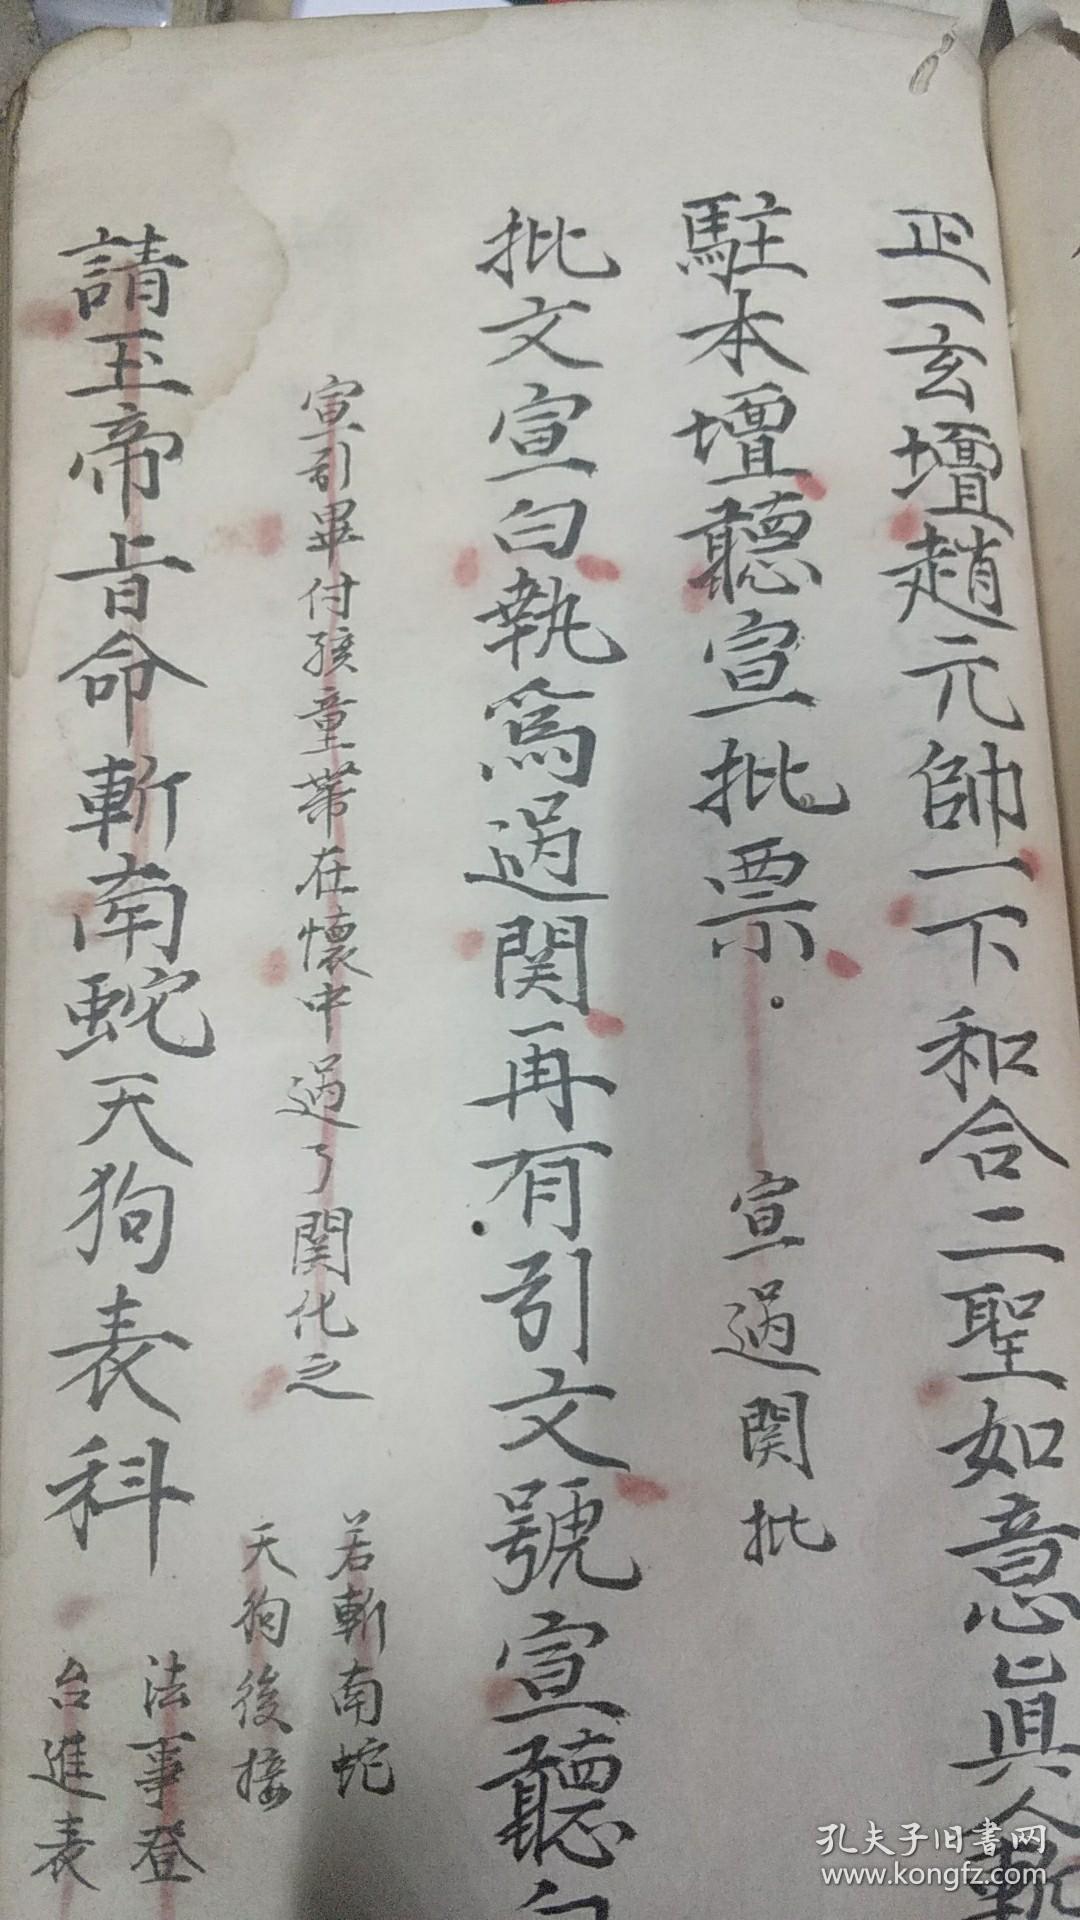 正一玄壇趙元帥一下和合二聖如意眞人
駐本壇聽宣批票
宣過関批
批文宣白執爲過関再有引文號宣聽白
宣引畢付孩童帶在懷中過了関化之
若斬南蛇
天狗後接
請玉帝旨命斬南蛇天狗表科
法事登
台進表
孔夫子旧書网
www.kongfz.com